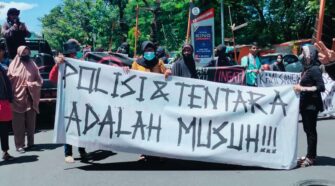 POLISI & TENTARA
ADALAH MUSUH!!!